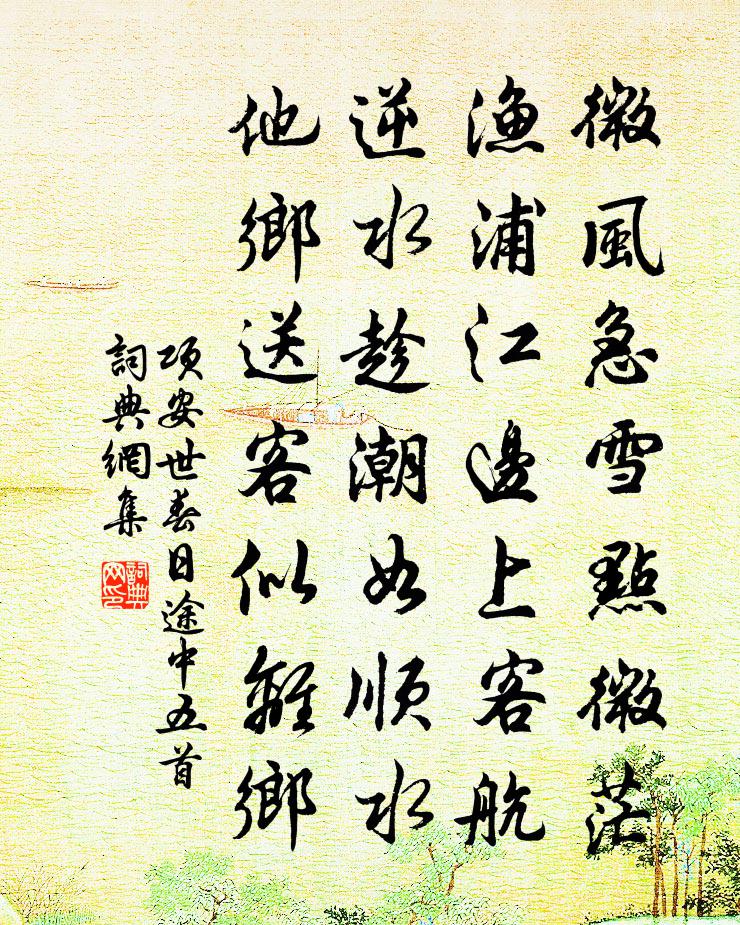 微風急雪點微茫
漁浦江邊上客航
逆水趁潮如順水
他鄉送客似離鄉
項安世春日途中五首
詞典網集
詞典
网印